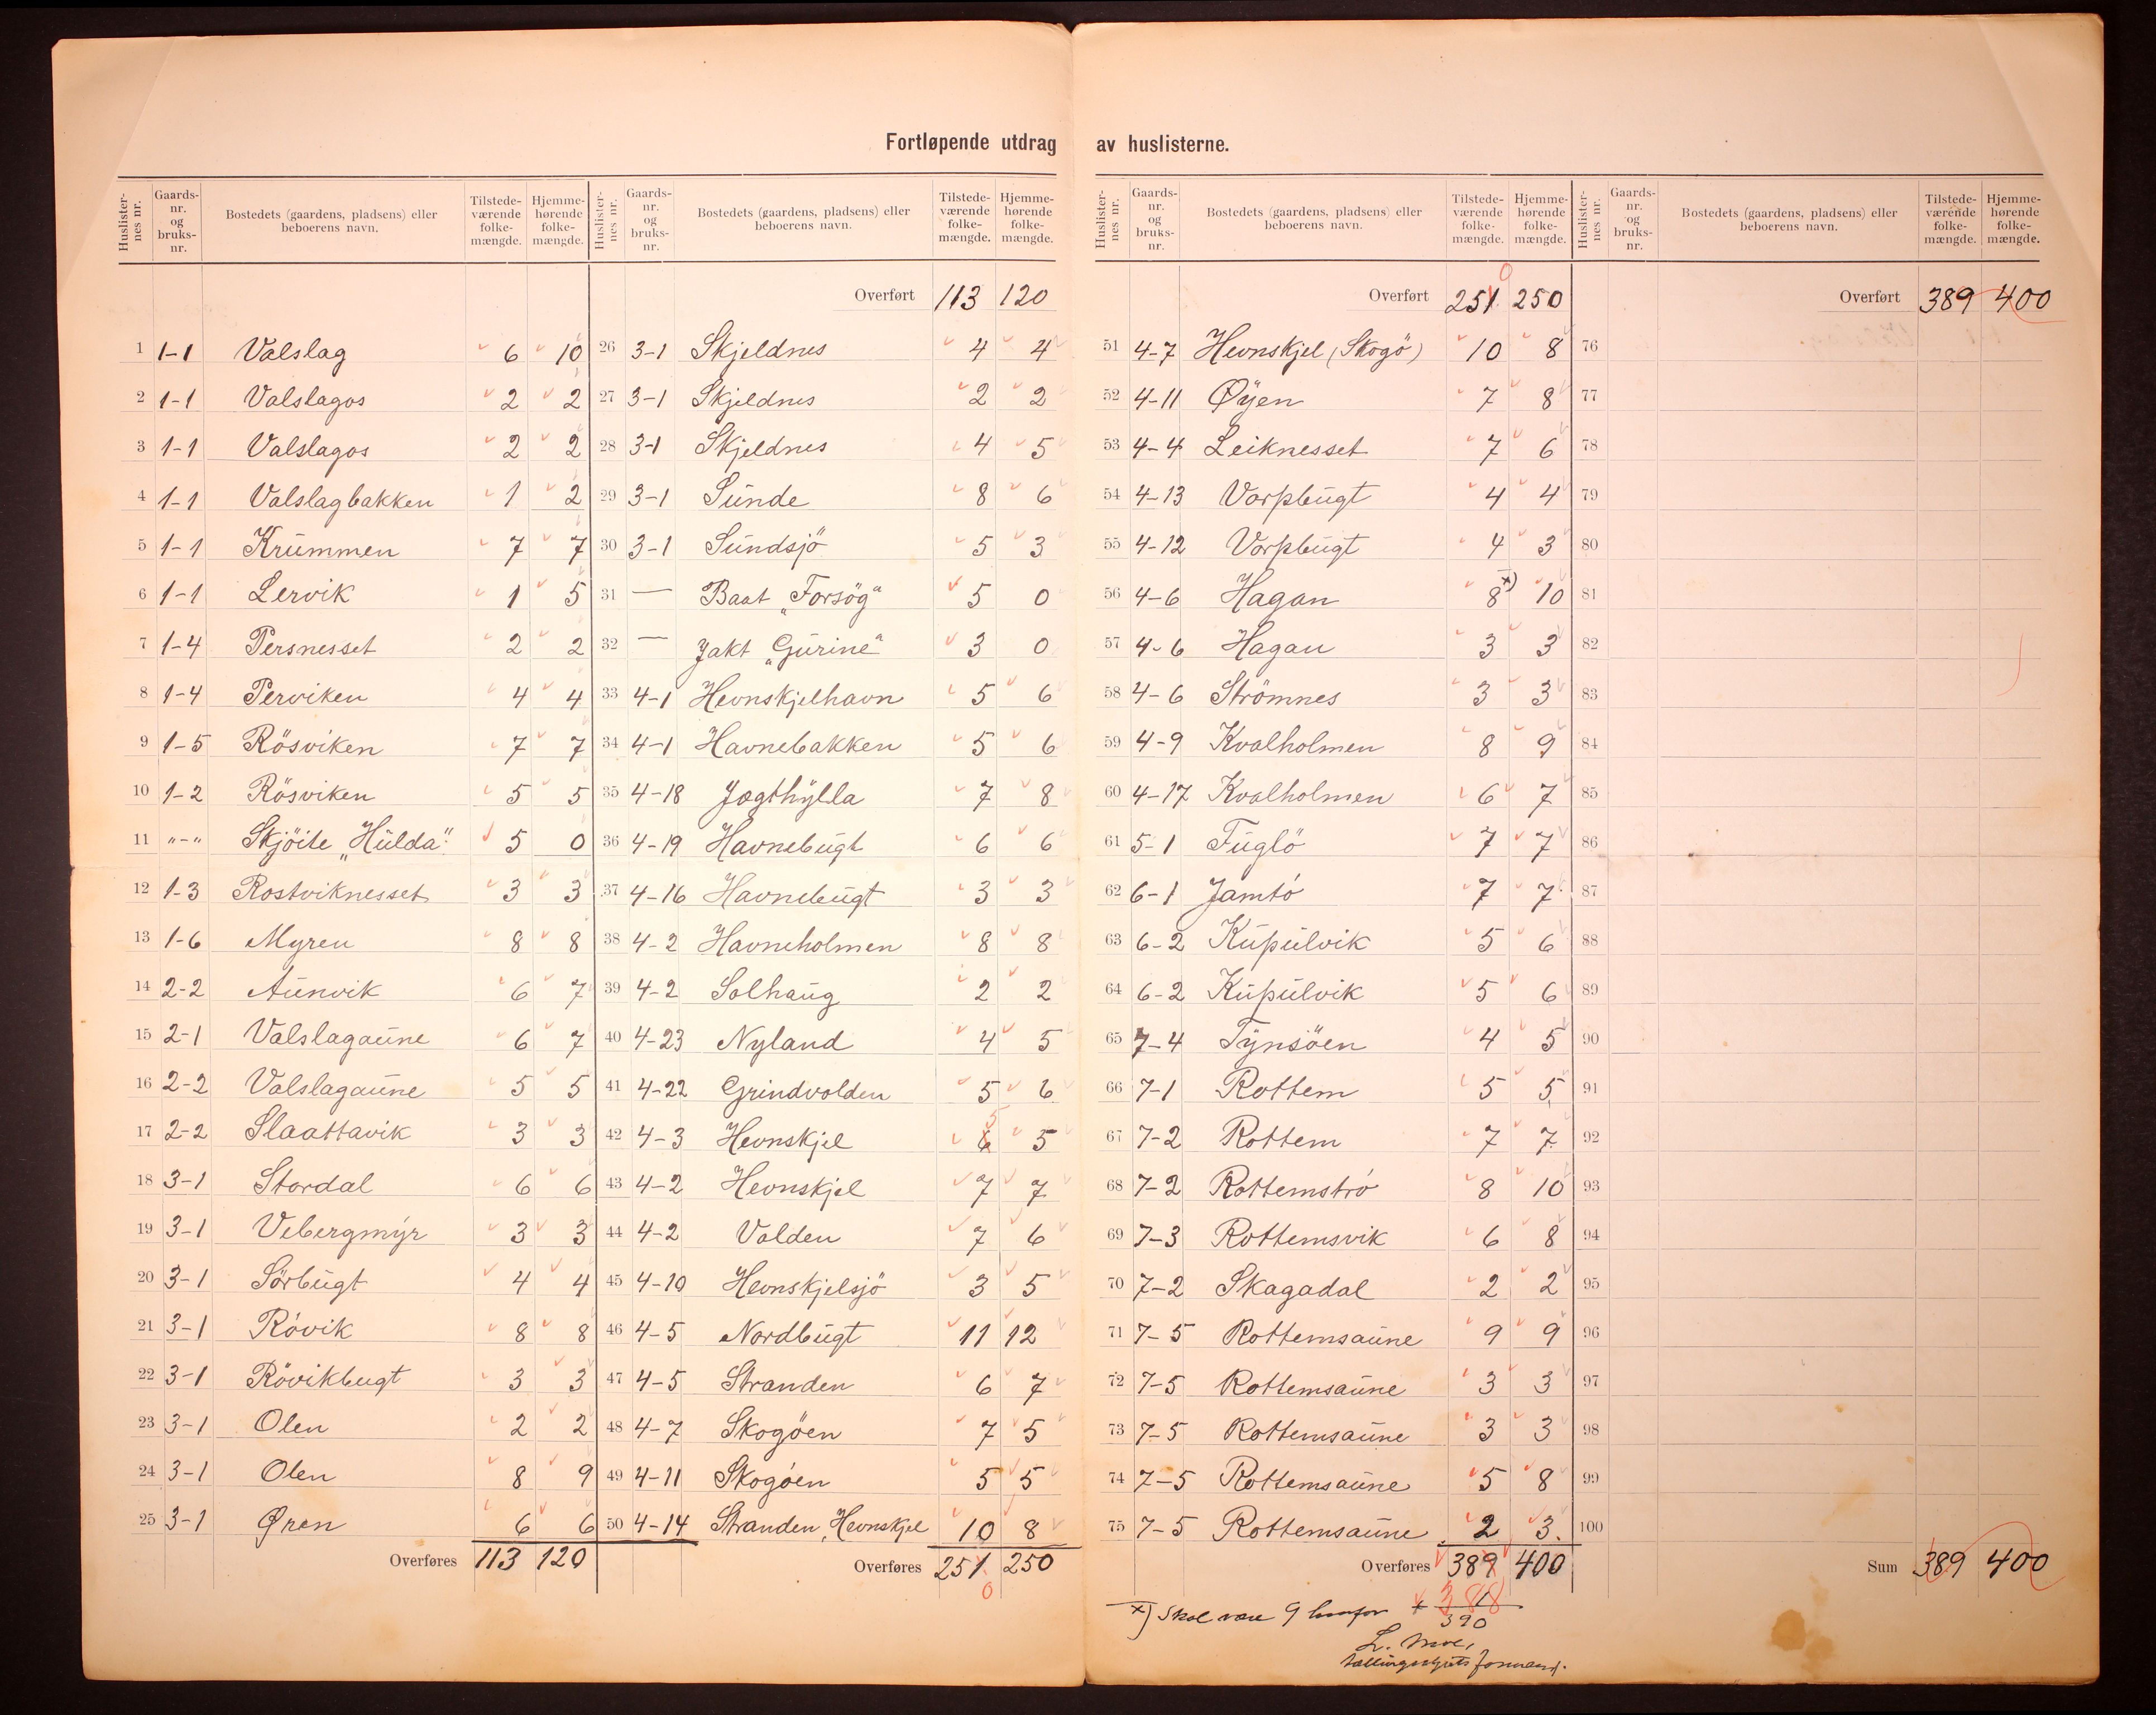 Fortløpende utdrag av huslisterne.
Huslisternes nr. Gaards-nr. og bruks-nr. Bostedets (gaardens, pladsens) eller beboerens navn. Tilstedeværende folkemængde. Hjemmehørende folkemængde.
1 1-1 Valslag 6 10
2 1-1 Valslagos 2 2
3 1-1 Valslagos 2 2
4 1-1 Valslagbakken 1 2
5 1-1 Krummen 7 7
6 1-1 Lervik 1 5
7 1-4 Persnesset 2 2
8 1-4 Perviken 4 4
9 1-5 Rösviken 7 7
10 1-2 Rösviken 5 5
11 "-" Skjöite „Hulda" 5 0
12 1-3 Rostviknesset 3 3
13 1-6 Myren 8 8
14 2-2 Aunvik 6 7
15 2-1 Valslagaune 6 7
16 2-2 Valslagaune 5 5
17 2-2 Slaattavik 3 3
18 3-1 Stordal 6 6
19 3-1 Vebergmyr 3 3
20 3-1 Sörbugt 4 4
21 3-1 Rövik 8 8
22 3-1 Rövikbugt 3 3
23 3-1 Olen 2 2
24 3-1 Olen 8 9
25 3-1 Øren 6 6
Overføres 113 120
Huslisternes nr. Gaards-nr. og bruks-nr. Bostedets (gaardens, pladsens) eller beboerens navn. Tilstedeværende folkemængde. Hjemmehørende folkemængde.
Overført 113 120
26 3-1 Skjeldnes 4 4
27 3-1 Skjeldnes 2 2
28 3-1 Skjeldnes 4 5
29 3-1 Sunde 8 6
30 3-1 Sundsjö 5 3
31 — Baat „Forsög" 5 0
32 — Jakt „Gurine" 3 0
33 4-1 Hevnskjelhavn 5 6
34 4-1 Havnebakken 5 6
35 4-18 Jagthylla 7 8
36 4-19 Havnebugt 6 6
37 4-16 Havnebugt 3 3
38 4-2 Havneholmen 8 8
39 4-2 Solhaug 2 2
40 4-23 Nyland 4 5
41 4-22 Grindvolden 5 6
42 4-3 Hevnskjel 6 5 5
43 4-2 Hevnskjel 7 7
44 4-2 Volden 7 6
45 4-10 Hevnskjelsjö 3 5
46 4-5 Nordbugt 11 12
47 4-5 Stranden 6 7
48 4-7 Skogöen 7 5
49 4-11 Skogöen 5 5
50 4-14 Stranden, Hevnskjel 10 8
Overføres 251 250
0
Huslisternes nr. Gaards-nr. og bruks-nr. Bostedets (gaardens, pladsens) eller beboerens navn. Tilstedeværende folkemængde. Hjemmehørende folkemængde.
0
Overført 251 250
51 4-7 Hevnskjel (Skogö) 10 8
52 4-11 Øyen 7 8
53 4-4 Leiknesset 7 6
54 4-13 Vorpbugt 4 4
55 4-12 Vorpbugt 4 3
56 4-6 Hagan 8 x) 10
57 4-6 Hagan 3 3
58 4-6 Strömnes 3 3
59 4-9 Kvalholmen 8 9
60 4-17 Kvalholmen 6 7
61 5-1 Fuglö 7 7
62 6-1 Jamtö 7 7
63 6-2 Kupulvik 5 6
64 6-2 Kupulvik 5 6
65 7-4 Tynsöen 4 5
66 7-1 Rottem 5 5
67 7-2 Rottem 7 7
68 7-2 Rottemströ 8 10
69 7-3 Rottemsvik 6 8
70 7-2 Skagadal 2 2
71 7-5 Rottemsaune 9 9
72 7-5 Rottemsaune 3 3
73 7-5 Rottemsaune 3 3
74 7-5 Rottemsaune 5 8
75 7-5 Rottemsaune 2 3
Overføres 389 400
388
x) Skal være 9 + 1
390
L. Moe,
formand.
Huslisternes nr. Gaards-nr. og bruks-nr. Bostedets (gaardens, pladsens) eller beboerens navn. Tilstedeværende folkemængde. Hjemmehørende folkemængde.
Overført 389 400
76
77
78
79
80
81
82
83
84
85
86
87
88
89
90
91
92
93
94
95
96
97
98
99
100
Sum 389 400